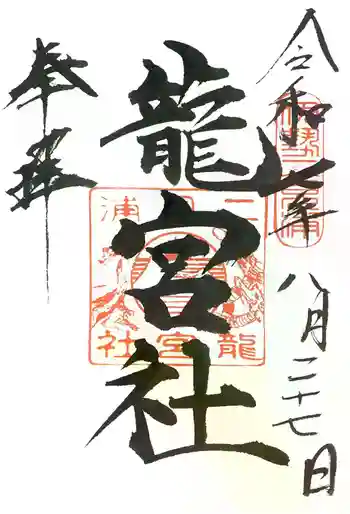 令和七年八月二十七日
龍宮社
奉拝
二
浦
龍宮社